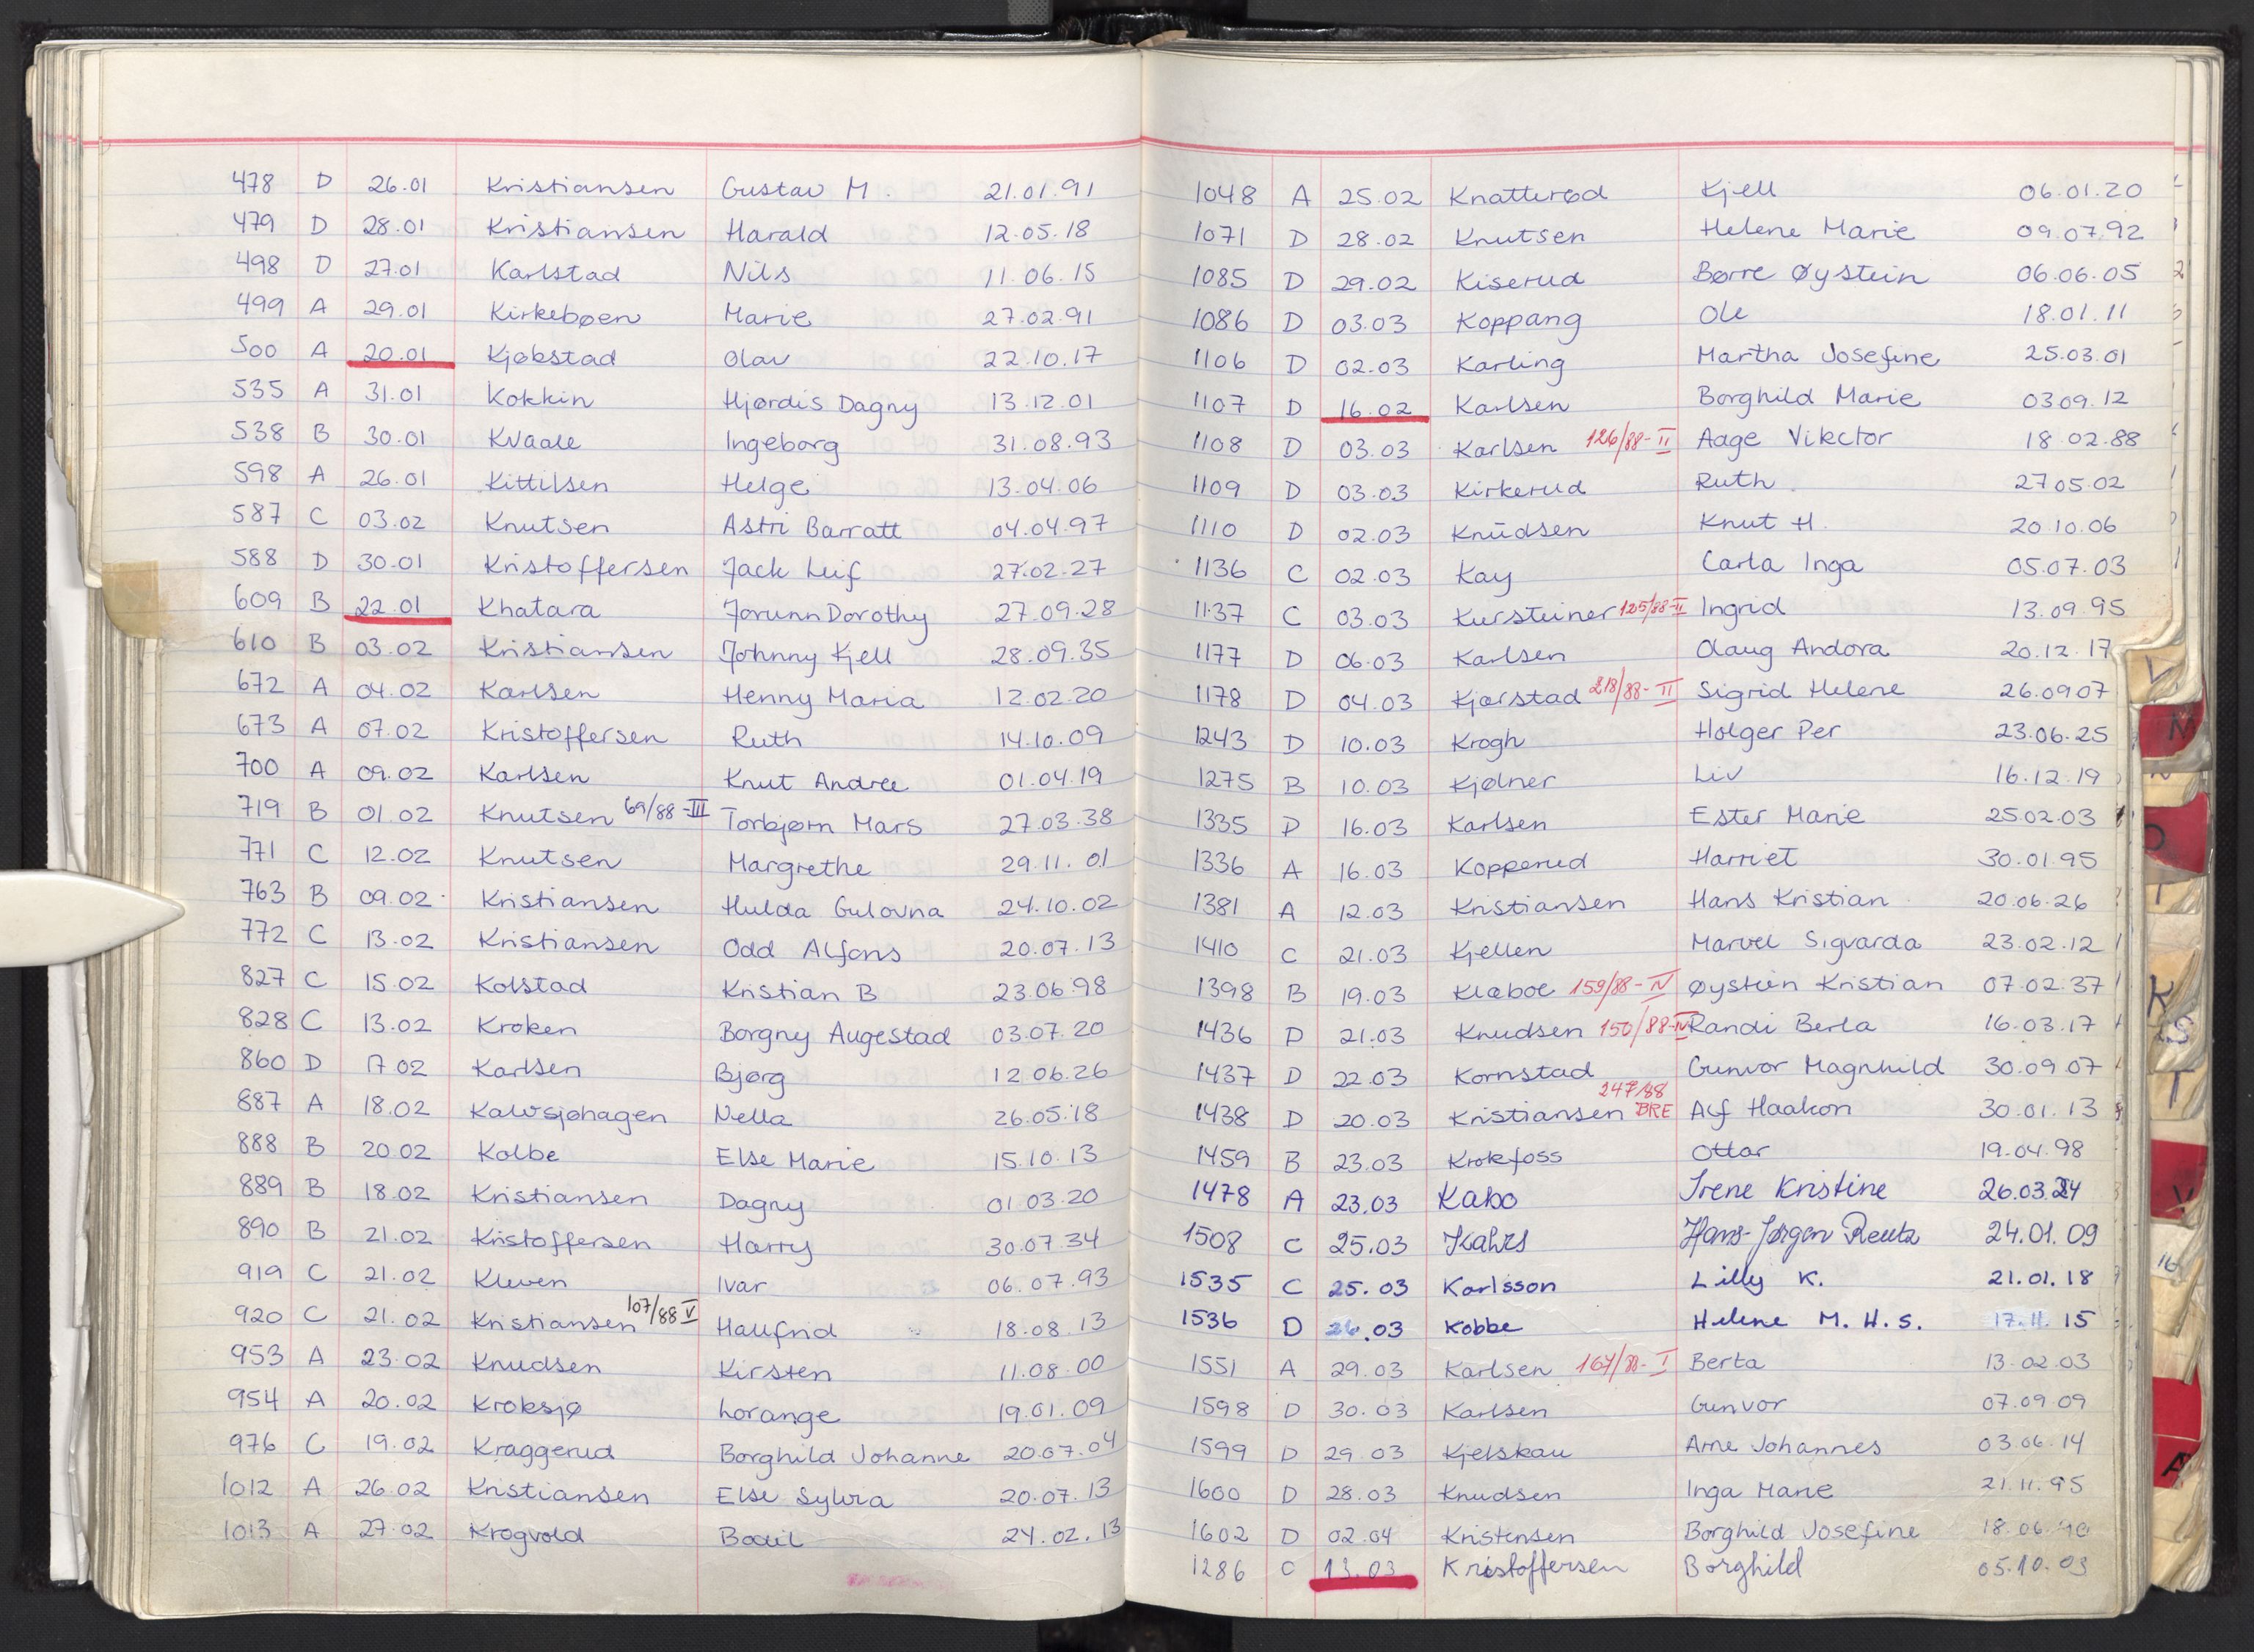 478 D 26.01 Kristiansen Gustav M. 21.01.91
479 D 28.01 Kristiansen Harald 12.05.18
498 D 27.01 Karlstad Nils 11.06.15
499 A 29.01 Kirkebøen Marie 27.02.91
500 A 20.01 Kjøbstad Olav 22.10.17
535 A 31.01 Kokkin Hjørdis Dagny 13.12.01
538 B 30.01 Kvaale Ingeborg 31.08.93
598 A 26.01 Kittilsen Helge 13.04.06
587 C 03.02 Knutsen Astri Barratt 04.04.97
588 D 30.01 Kristoffersen Jack Leif 27.02.27
609 B 22.01 Khatara Jorunn Dorothy 27.09.28
610 B 03.02 Kristiansen Johnny Kjell 28.09.35
672 A 04.02 Karlsen Henny Maria 12.02.20
673 A 07.02 Kristoffersen Ruth 14.10.09
700 A 09.02 Karlsen Knut Andree 01.04.19
719 B 01.02 Knutsen 69/88-III Torbjørn Mars 27.03.38
771 C 12.02 Knutsen Margrethe 29.11.01
763 B 09.02 Kristiansen Hulda Gulovna 24.10.02
772 C 13.02 Kristiansen Odd Alfons 20.07.13
827 C 15.02 Kolstad Kristian B 23.06.98
828 C 13.02 Kroken Borgny Augestad 03.07.20
860 D 17.02 Karlsen Bjørg 12.06.26
887 A 18.02 Kalvsjøhagen Nella 26.05.18
888 B 20.02 Kolbe Else Marie 15.10.13
889 B 18.02 Kristiansen Dagny 01.03.20
890 B 21.02 Kristoffersen Harry 30.07.34
919 C 21.02 Kleven Ivar 06.07.93
920 C 21.02 Kristiansen 107/88 V Hallfrid 18.08.13
953 A 23.02 Knudsen Kirsten 11.08.00
954 A 20.02 Kroksjø Lorange 19.01.09
976 C 19.02 Kraggerud Borghild Johanne 20.07.04
1012 A 26.02 Kristiansen Else Sylvia 20.07.13
1013 A 27.02 Krogvold Bodil 24.02.13
1048 A 25.02 Knatterød Kjell 06.01.20
1071 D 28.02 Knutsen Helene Marie 09.07.92
1085 D 29.02 Kiserud Børre Øystein 06.06.05
1086 D 03.03 Koppang Ole 18.01.11
1106 D 02.03 Karling Martha Josefine 25.03.01
1107 D 16.02 Karlsen Borghild Marie 03.09.12
1108 D 03.03 Karlsen 126/88-II Aage Vikctor 18.02.88
1109 D 03.03 Kirkerud Ruth 27.05.02
1110 D 02.03 Knudsen Knut H. 20.10.06
1136 C 02.03 Kay Carla Inga 05.07.03
1137 C 03.03 Kursteiner 125/88-II Ingrid 13.09.95
1177 D 06.03 Karlsen Olaug Andora 20.12.17
1178 D 04.03 Kjørstad 218/88-II Sigrid Helene 26.09.07
1243 D 10.03 Krogh Holger Per 23.06.25
1275 B 10.03 Kjølner Liv 16.12.19
1335 D 16.03 Karlsen Ester Marie 25.02.03
1336 A 16.03 Kopperud Harriet 30.01.95
1381 A 12.03 Kristiansen Hans Kristian 20.06.26
1410 C 21.03 Kjellen Marvel Sigvarda 23.02.12
1398 B 19.03 Klæboe 159/88-IV Øystein Kristian 07.02.37
1436 D 21.03 Knudsen 150/88-IV Randi Berla 16.03.17
1437 D 22.03 Kornstad Gunvor Magnhild 30.09.07
1438 D 20.03 Kristiansen 247/88 BRE Alf Haakon 30.01.13
1459 B 23.03 Krokfoss Ottar 19.04.98
1478 A 23.03 Kabo Irene Kristine 26.03.24
1508 C 25.03 Kahrs Hans-Jørgen Reutz 24.01.09
1535 C 25.03 Karlsson Lilly K. 21.01.18
1536 D 26.03 Kobbe Helene M. H. S. 17.11.15
1551 A 29.03 Karlsen 167/88-I Berta 13.02.03
1598 D 30.03 Karlsen Gunvor 07.09.09
1599 D 29.03 Kjelskau Arne Johannes 03.06.14
1600 D 28.03 Knudsen Inga Marie 21.11.95
1602 D 02.04 Kristensen Borghild Josefine 18.06
1286 C 13.03 Kristoffersen Borghild 05.10.03
L
M
K
S
T
V
16
A